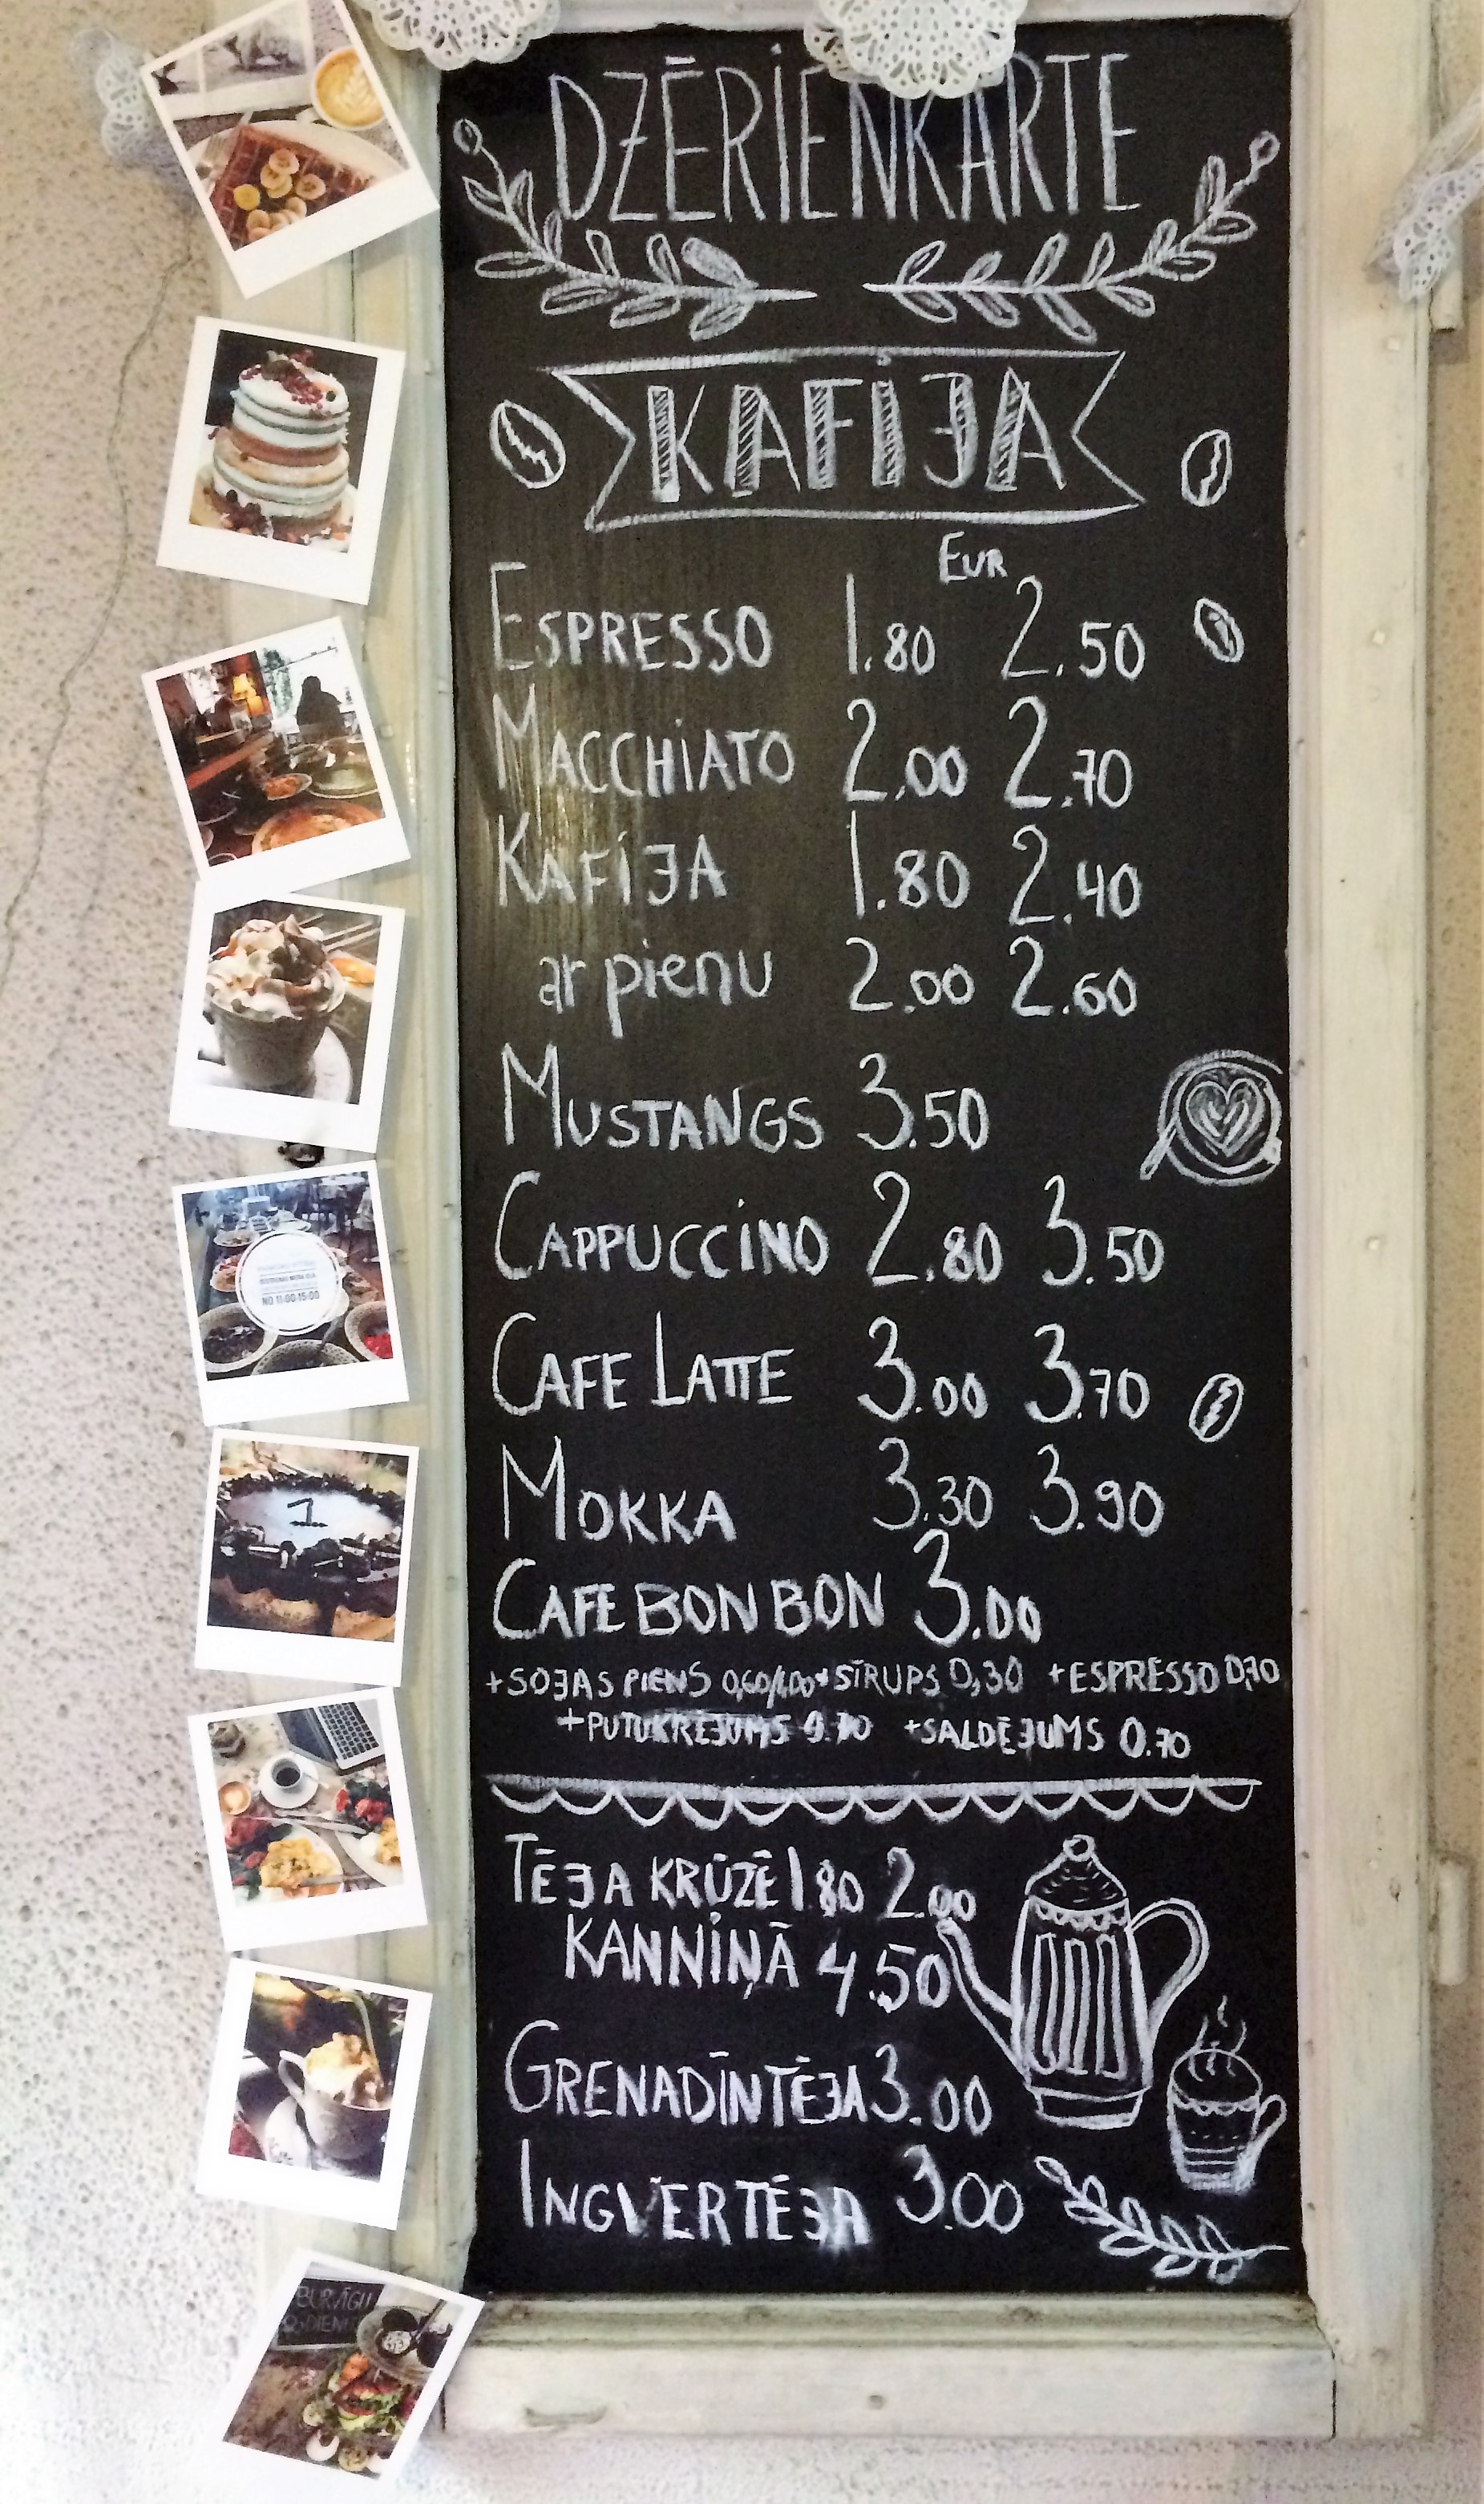 DZĒRIENKARTE
KAFIJA
EUR
ESPRESSO 1.80 2.50
MACCHIATO 2.00 2.70
KAFIJA 1.80 2.40
ar pienu 2.00 2.60
MUSTANGS 3.50
CAPPUCCINO 2.80 3.50
CAFE LATTE 3.00 3.70
MOKKA 3.30 3.90
CAFE BON BON 3.00
+SOJAS PIENS 0,60/1.00 +SĪRUPS 0,30 +ESPRESSO 0,70
+PUTUKRĒJUMS 0.70 +SALDĒJUMS 0.70
TĒJA KRŪZĒ 1.80 2.00
KANNIŅĀ 4.50
GRENADĪNTĒJA 3.00
INGVERTĒJA 3.00
NO 11:00-15:00
1.
BURĀGU